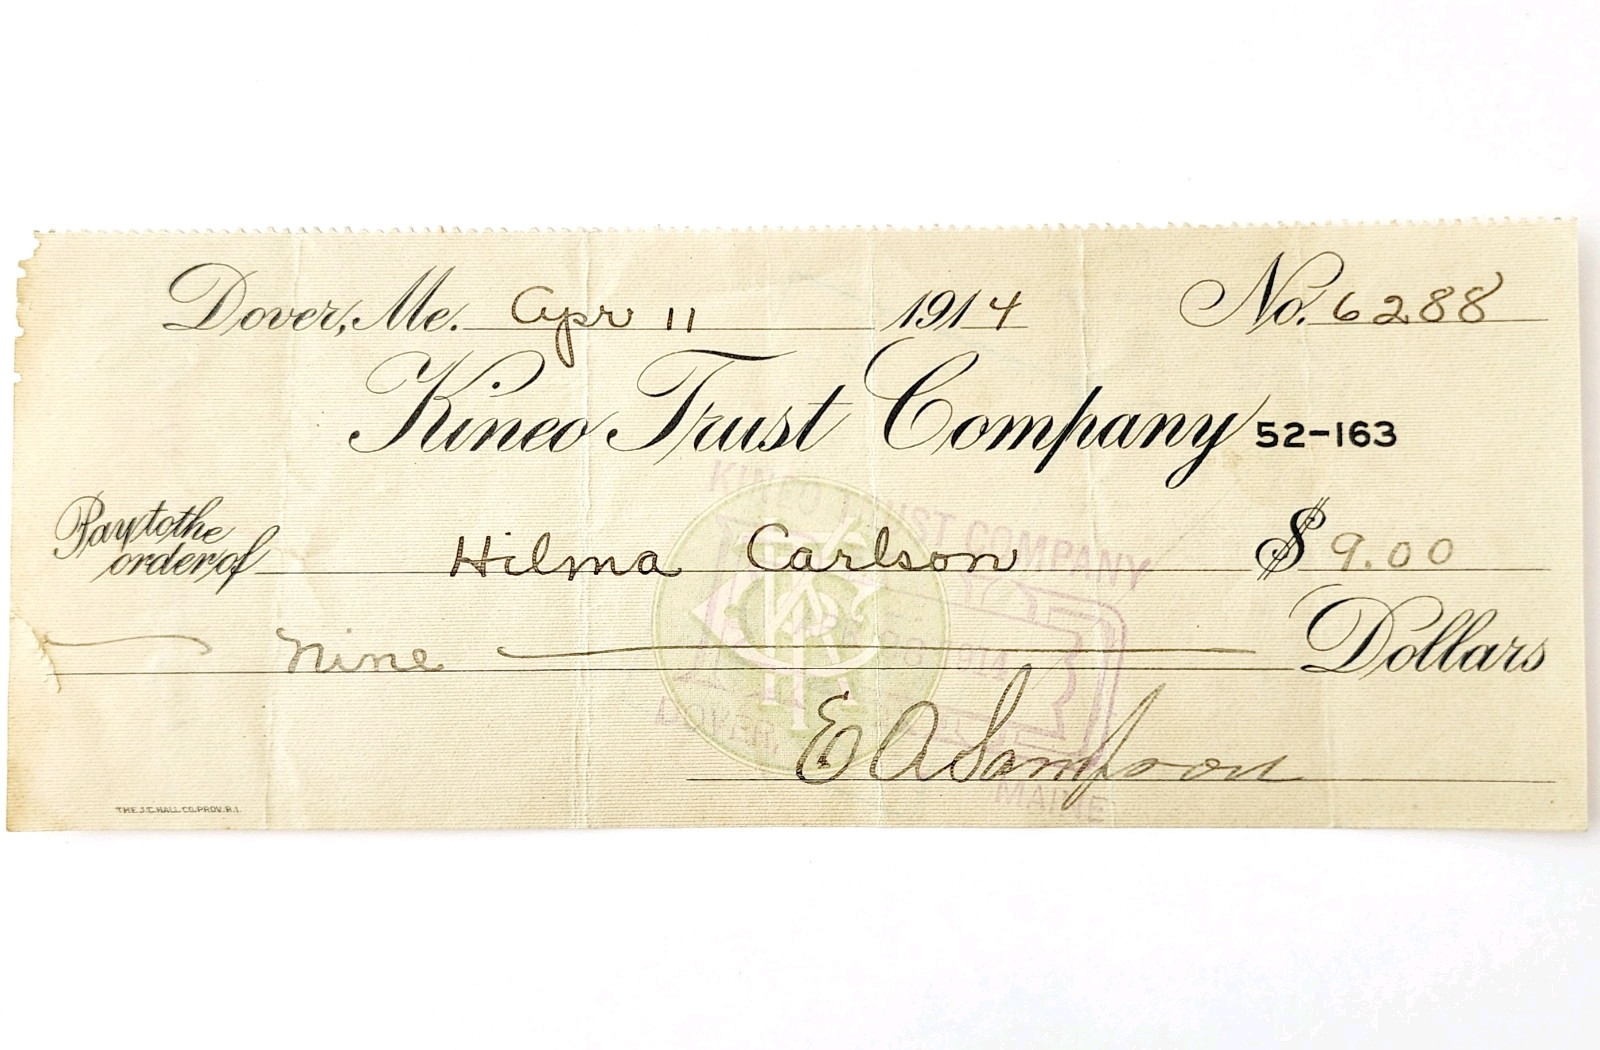 Dover, Me. Apr 11 1914 No. 6288
Kineo Trust Company 52-163
Pay to the order of Hilma Carlson $ 9.00
Nine Dollars
KINEO TRUST COMPANY
PAID
1914
DOVER, MAINE
E A Sampson
THE J.C. HALL CO. PROV. R.I.